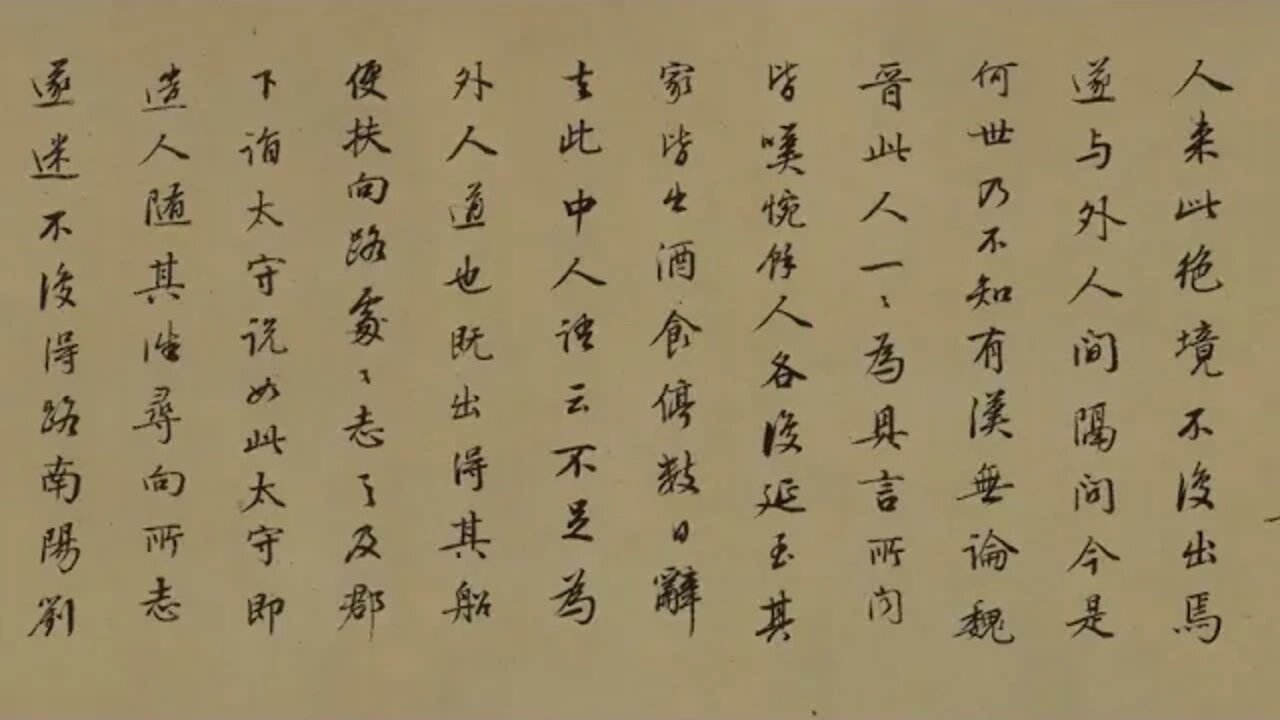 人来此绝境不復出焉
遂与外人间隔问今是
何世乃不知有漢無論魏
晋此人一〻為具言所问
皆嘆惋餘人各復延至其
家皆出酒食停数日辭
去此中人语云不足為
外人道也既出得其船
便扶向路處〻志之及郡
下詣太守说如此太守即
遣人随其往尋向所志
遂迷不復得路南陽劉